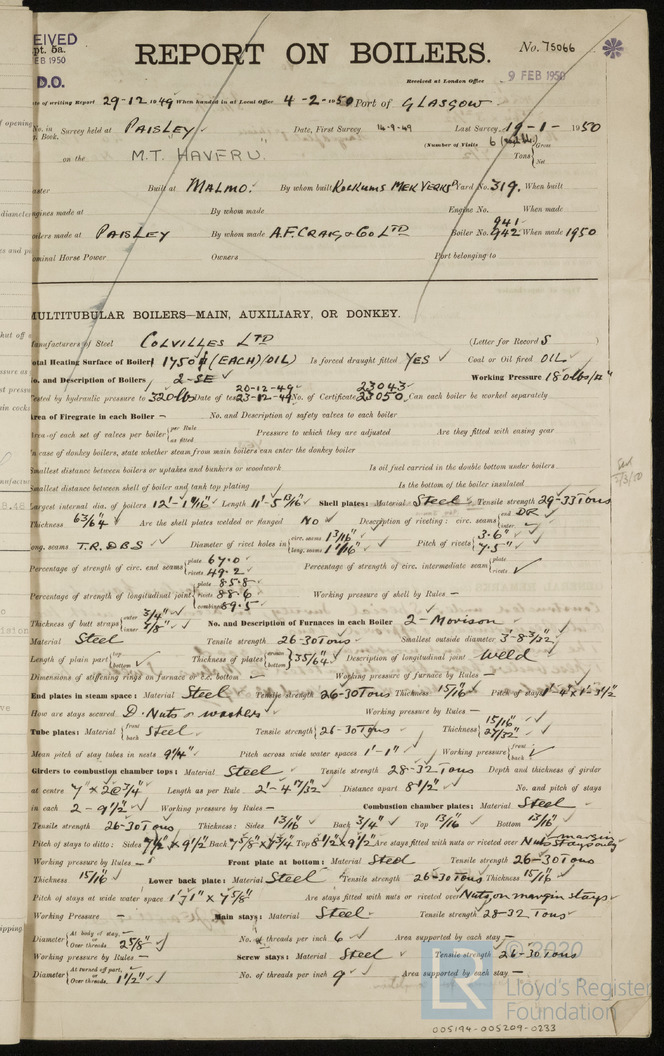 EIVED
pt. 5a.
EB 1950
D.O.
REPORT ON BOILERS.
No. 75066
Received at London Office
9 FEB 1950
te of writing Report 29-12 1949 When handed in at Local Office 4-2-1950 Port of GLASGOW.
No. in Survey held at PAISLEY. Date, First Survey 14-9-49 Last Survey 19-1-1950
g. Book.
(Number of Visits 6
on the M.T. "HAVERU" Tons { Gross Net
aster Built at MALMO. By whom built KOCKUMS MEK VERKS Yard No. 319. When built
ngines made at By whom made Engine No. When made
oilers made at PAISLEY By whom made A.F. CRAIG & Co LTD Boiler No. 941 942 When made 1950
ominal Horse Power Owners Port belonging to
MULTITUBULAR BOILERS—MAIN, AUXILIARY, OR DONKEY.
anufacturers of Steel COLVILLES LTD (Letter for Record S )
otal Heating Surface of Boilers 1750 (EACH) (OIL) Is forced draught fitted YES Coal or Oil fired OIL
o. and Description of Boilers 2-SE Working Pressure 180 lbs/□"
ested by hydraulic pressure to 320 lbs Date of test 20-12-49 23-12-49 No. of Certificate 23043 23050 Can each boiler be worked separately
Area of Firegrate in each Boiler — No. and Description of safety valves to each boiler
Area of each set of valves per boiler { per Rule as fitted Pressure to which they are adjusted Are they fitted with easing gear
n case of donkey boilers, state whether steam from main boilers can enter the donkey boiler
mallest distance between boilers or uptakes and bunkers or woodwork Is oil fuel carried in the double bottom under boilers
mallest distance between shell of boiler and tank top plating Is the bottom of the boiler insulated
argest internal dia. of boilers 12'-1 11/16" Length 11'-5 13/16" Shell plates: Material Steel Tensile strength 29-33 Tons
Thickness 63/64 Are the shell plates welded or flanged NO Description of riveting: circ. seams { end DR inter.
ong. seams T.R.DBS Diameter of rivet holes in { circ. seams 1 3/16" long. seams 1 1/16" Pitch of rivets { 3.6" 7.5"
Percentage of strength of circ. end seams { plate 67.0 rivets 49.2 Percentage of strength of circ. intermediate seam { plate rivets
Percentage of strength of longitudinal joint { plate 85.8 rivets 88.6 combined 89.5 Working pressure of shell by Rules —
Thickness of butt straps { outer 3/4" inner 7/8" No. and Description of Furnaces in each Boiler 2-Morison
Material Steel Tensile strength 26-30 Tons Smallest outside diameter 3'-8 3/32"
Length of plain part { top bottom Thickness of plates { crown bottom } 35/64" Description of longitudinal joint Weld
Dimensions of stiffening rings on furnace or c.c. bottom Working pressure of furnace by Rules —
End plates in steam space: Material Steel Tensile strength 26-30 Tons Thickness 15/16" Pitch of stays 1'-4" x 1'-3 1/2"
How are stays secured D. Nuts & washers Working pressure by Rules —
Tube plates: Material { front back } Steel Tensile strength { 26-30 Tons Thickness { 15/16" 27/32"
Mean pitch of stay tubes in nests 9 1/4" Pitch across wide water spaces 1'-1" Working pressure { front back
Girders to combustion chamber tops: Material Steel Tensile strength 28-32 Tons Depth and thickness of girder
at centre 7" x 2@3/4" Length as per Rule 2'-4 17/32 Distance apart 8 1/2" No. and pitch of stays
in each 2-9 1/2" Working pressure by Rules — Combustion chamber plates: Material Steel
Tensile strength 26-30 Tons Thickness: Sides 13/16" Back 3/4" Top 13/16" Bottom 13/16"
Pitch of stays to ditto: Sides 7 1/2" x 9 1/2" Back 7 5/8" x 7 3/4" Top 8 1/2" x 9 1/2" Are stays fitted with nuts or riveted over Nuts margin stays only
Working pressure by Rules — Front plate at bottom: Material Steel Tensile strength 26-30 Tons
Thickness 15/16" Lower back plate: Material Steel Tensile strength 26-30 Tons Thickness 15/16"
Pitch of stays at wide water space 1'1" x 7 5/8" Are stays fitted with nuts or riveted over Nuts, on margin stays.
Working Pressure — Main stays: Material Steel Tensile strength 28-32 Tons
Diameter { At body of stay, or Over threads. 2 5/8" No. of threads per inch 6 Area supported by each stay —
Working pressure by Rules — Screw stays: Material Steel Tensile strength 26-30 Tons
Diameter { At turned off part, or Over threads. 1 1/2" No. of threads per inch 9 Area supported by each stay —
© 2020
LR
Lloyd's Register
Foundation
005194-005209-0233